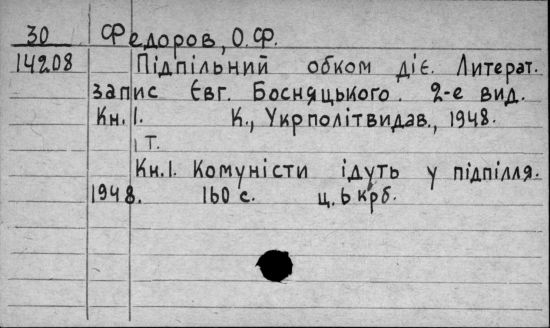 30 Федоров, О.Ф.
14208 Підпільний обком діє. Литерат.
запис Євг. Босняцького. 2-е вид.
Кн. I. К., Укрполітвидав., 1948.
1 т.
Кн.I. Комуністи ідуть у підпілля.
1948. 160 с. ц. 6 крб.